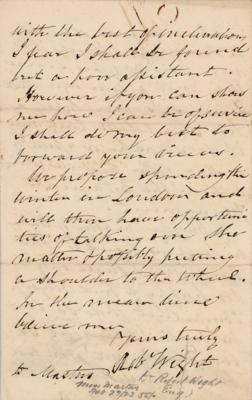 with the best of inclination
I fear I shall be found
but a poor assistant.
However if you can show
me how I can be of service
I shall do my best to
forward your views.
We propose spending the
winter in London and
will then have opportuni
ties of talking over the
matter & possibly putting
a shoulder to the wheel.
In the mean time
believe me
Yours truly
Robt Wight
to Masters